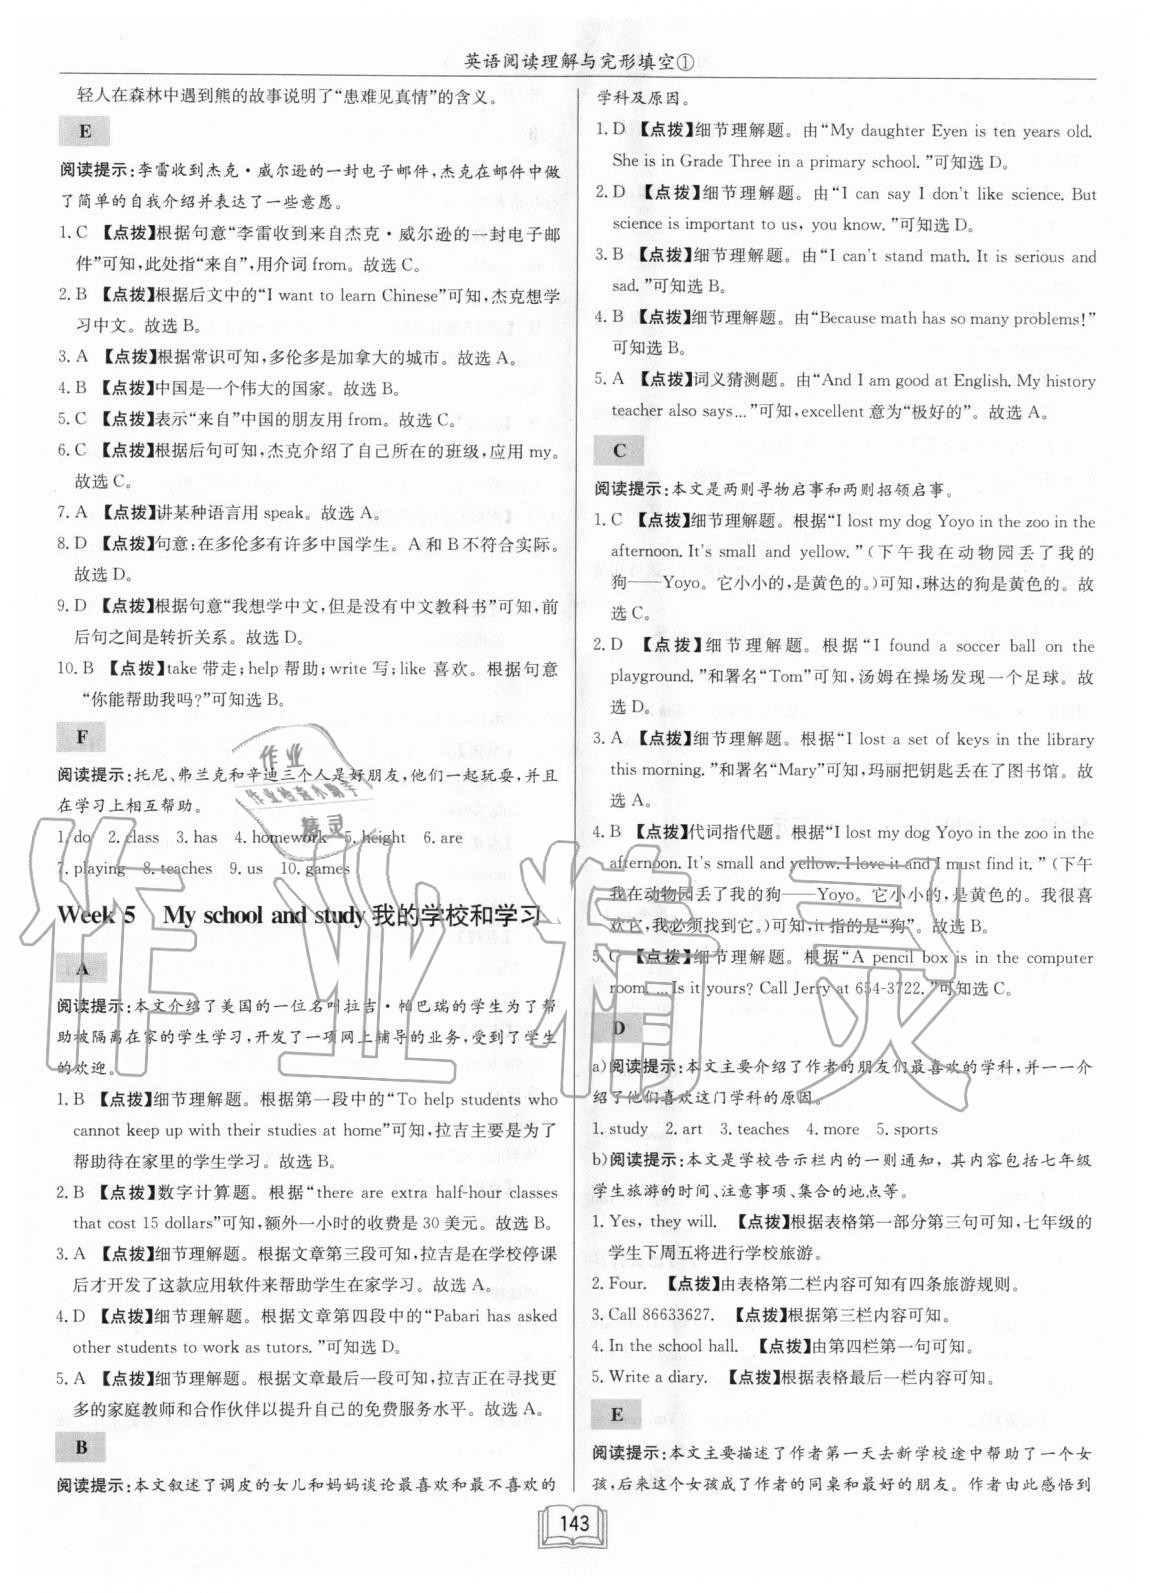 英语阅读理解与完形填空①
轻人在森林中遇到熊的故事说明了“患难见真情”的含义。
E
阅读提示:李雷收到杰克·威尔逊的一封电子邮件,杰克在邮件中做
了简单的自我介绍并表达了一些意愿。
1. C 【点拨】根据句意“李雷收到来自杰克·威尔逊的一封电子邮
件”可知,此处指“来自”,用介词 from。故选 C。
2. B 【点拨】根据后文中的“I want to learn Chinese”可知,杰克想学
习中文。故选 B。
3. A 【点拨】根据常识可知,多伦多是加拿大的城市。故选 A。
4. B 【点拨】中国是一个伟大的国家。故选 B。
5. C 【点拨】表示“来自”中国的朋友用 from。故选 C。
6. C 【点拨】根据后句可知,杰克介绍了自己所在的班级,应用 my。
故选 C。
7. A 【点拨】讲某种语言用 speak。故选 A。
8. D 【点拨】句意:在多伦多有许多中国学生。A 和 B 不符合实际。
故选 D。
9. D 【点拨】根据句意“我想学中文,但是没有中文教科书”可知,前
后句之间是转折关系。故选 D。
10. B 【点拨】take 带走;help 帮助;write 写;like 喜欢。根据句意
“你能帮助我吗?”可知选 B。
F
阅读提示:托尼、弗兰克和辛迪三个人是好朋友,他们一起玩耍,并且
在学习上相互帮助。
1. do 2. class 3. has 4. homework 5. height 6. are
7. playing 8. teaches 9. us 10. games
Week 5 My school and study 我的学校和学习
A
阅读提示:本文介绍了美国的一位名叫拉吉·帕巴瑞的学生为了帮
助被隔离在家的学生学习,开发了一项网上辅导的业务,受到了学生
的欢迎。
1. B 【点拨】细节理解题。根据第一段中的“To help students who
cannot keep up with their studies at home”可知,拉吉主要是为了
帮助待在家里的学生学习。故选 B。
2. B 【点拨】数字计算题。根据“there are extra half-hour classes
that cost 15 dollars”可知,额外一小时的收费是 30 美元。故选 B。
3. A 【点拨】细节理解题。根据文章第三段可知,拉吉是在学校停课
后才开发了这款应用软件来帮助学生在家学习。故选 A。
4. D 【点拨】细节理解题。根据文章第四段中的“Pabari has asked
other students to work as tutors.”可知选 D。
5. A 【点拨】细节理解题。根据文章最后一段可知,拉吉正在寻找更
多的家庭教师和合作伙伴以提升自己的免费服务水平。故选 A。
B
阅读提示:本文叙述了调皮的女儿和妈妈谈论最喜欢和最不喜欢的
学科及原因。
1. D 【点拨】细节理解题。由“My daughter Eyen is ten years old.
She is in Grade Three in a primary school.”可知选 D。
2. D 【点拨】细节理解题。由“I can say I don't like science. But
science is important to us, you know.”可知选 D。
3. B 【点拨】细节理解题。由“I can't stand math. It is serious and
sad.”可知选 B。
4. B 【点拨】细节理解题。由“Because math has so many problems!”
可知选 B。
5. A 【点拨】词义猜测题。由“And I am good at English. My history
teacher also says...”可知,excellent 意为“极好的”。故选 A。
C
阅读提示:本文是两则寻物启事和两则招领启事。
1. C 【点拨】细节理解题。根据“I lost my dog Yoyo in the zoo in the
afternoon. It's small and yellow.”(下午我在动物园丢了我的
狗——Yoyo。它小小的,是黄色的。)可知,琳达的狗是黄色的。故
选 C。
2. D 【点拨】细节理解题。根据“I found a soccer ball on the
playground.”和署名“Tom”可知,汤姆在操场发现一个足球。故
选 D。
3. A 【点拨】细节理解题。根据“I lost a set of keys in the library
this morning.”和署名“Mary”可知,玛丽把钥匙丢在了图书馆。故
选 A。
4. B 【点拨】代词指代题。根据“I lost my dog Yoyo in the zoo in the
afternoon. It's small and yellow. I love it and I must find it.”(下午
我在动物园丢了我的狗——Yoyo。它小小的,是黄色的。我很喜
欢它,我必须找到它。)可知,it 指的是“狗”。故选 B。
5. C 【点拨】细节理解题。根据“A pencil box is in the computer
room. ... Is it yours? Call Jerry at 654-3722.”可知选 C。
D
a)阅读提示:本文主要介绍了作者的朋友们最喜欢的学科,并一一介
绍了他们喜欢这门学科的原因。
1. study 2. art 3. teaches 4. more 5. sports
b)阅读提示:本文是学校告示栏内的一则通知,其内容包括七年级
学生旅游的时间、注意事项、集合的地点等。
1. Yes, they will. 【点拨】根据表格第一部分第三句可知,七年级的
学生下周五将进行学校旅游。
2. Four. 【点拨】由表格第二栏内容可知有四条旅游规则。
3. Call 86633627. 【点拨】根据第三栏内容可知。
4. In the school hall. 【点拨】由第四栏第一句可知。
5. Write a diary. 【点拨】根据表格最后一栏内容可知。
E
阅读提示:本文主要描述了作者第一天去新学校途中帮助了一个女
孩,后来这个女孩成了作者的同桌和最好的朋友。作者由此感悟到
143
作业
作业检查小助手
精灵
作业精灵